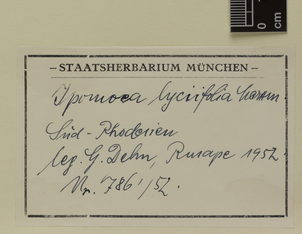 0 1
cm
– STAATSHERBARIUM MÜNCHEN –
Ipomoea lyciifolia
Süd-Rhodesien
leg. G. Dehn, Rusape 1952
Nr. 786/52.